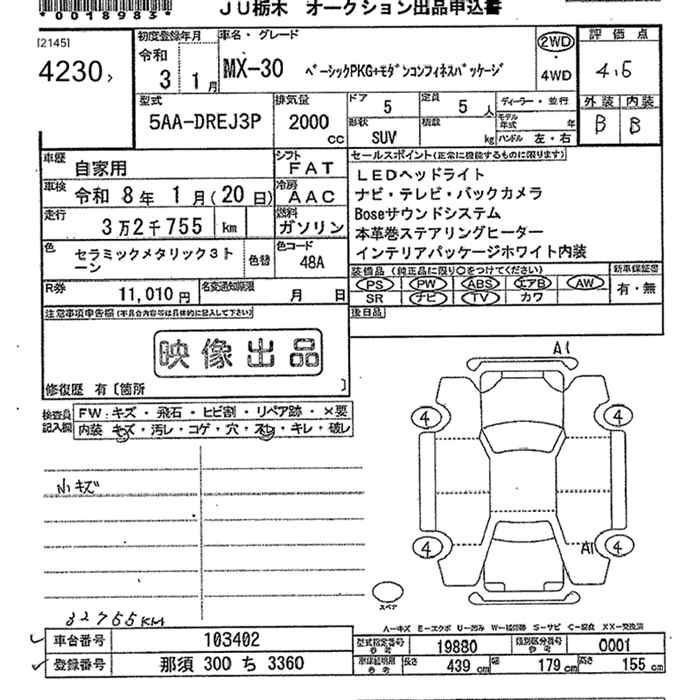 *0018983*
JU栃木 オークション出品申込書
[2145]
4230
初度登録年月
令和
3 1月
車名・グレード
MX-30 ベーシックPKG+モダンコンフィネスパッケージ
2WD
・
4WD
評価点
4.5
外装 内装
B B
型式
5AA-DREJ3P
排気量
2000
CC
ドア
5
定員
5人
形状
SUV
積載
kg
ディーラー・並行
モデル年式 年
ハンドル 左・右
車歴
自家用
シフト
FAT
車検
令和 8年 1月(20日)
冷房
AAC
走行
3万2千755 km
燃料
ガソリン
色
セラミックメタリック3トーン
色替
色コード
48A
R券
11,010円
名変通知期限
月 日
セールスポイント(正常に機能するものに限ります)
LEDヘッドライト
ナビ・テレビ・バックカメラ
Boseサウンドシステム
本革巻ステアリングヒーター
インテリアパッケージホワイト内装
装備品 (純正品に限り○をつけてください)
PS PW ABS エアB AW
SR ナビ TV カワ
新車保証書
有・無
後日品
注意事項申告欄(不具合内容等は具体的に記入して下さい)
映像出品
修復歴 有〔箇所 〕
検査員記入欄
FW:キズ・飛石・ヒビ割・リペア跡・×要
内装 キズ・汚レ・コゲ・穴・スレ・キレ・破レ
小キズ
A1
4
4
4
4
A1
スペア
32755KM
A-キズ E-エクボ U-凹み W-補修跡 S-サビ C-腐食 XX-交換済
車台番号
103402
登録番号
那須 300 ち 3360
型式指定番号
参考
19880
類別区分番号
参考
0001
車検証明用
参考
長さ
439cm
幅
179cm
高さ
155cm